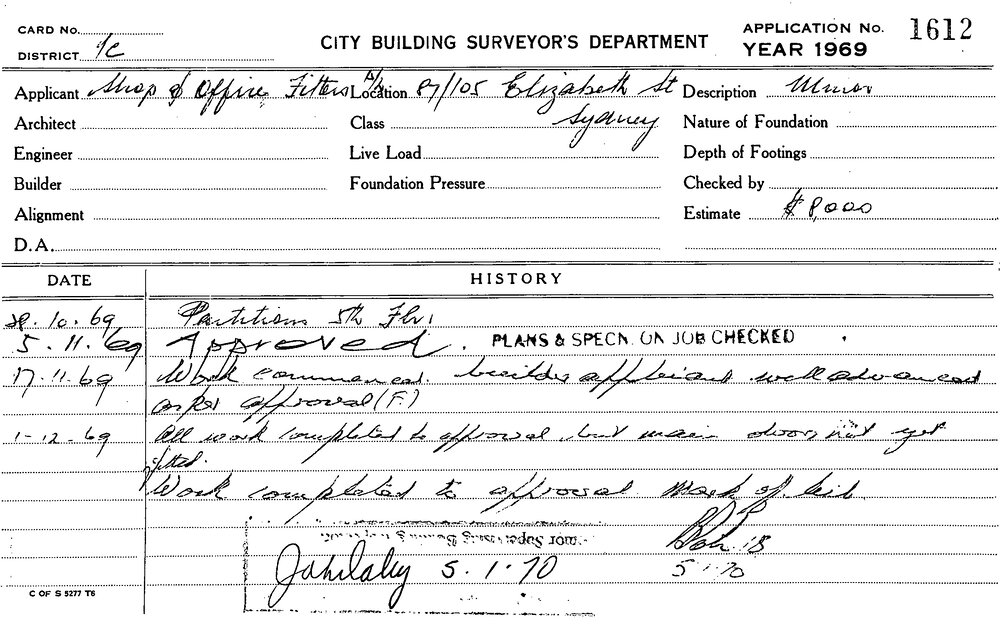 CARD No.
DISTRICT
CITY BUILDING SURVEYOR'S DEPARTMENT
APPLICATION No. 1612
YEAR 1969
Applicant Shop & Office Fitters
Location 87/105 Elizabeth St
Sydney
Description Minor
Architect
Class
Nature of Foundation
Engineer
Live Load
Depth of Footings
Builder
Foundation Pressure
Checked by
Alignment
Estimate $8,000
D.A.
DATE HISTORY
10.69 Partitions 5th Flr.
5.11.69 Approved. PLANS & SPECN. ON JOB CHECKED
17.11.69 Work commenced. builder applicant well advanced
as per approval (F.)
1-12-69 All work completed to approval but main door not yet
fitted.
Work completed to approval. Mark of bib.
John Daley 5.1.70
5.1.70
C OF S 5277 T6